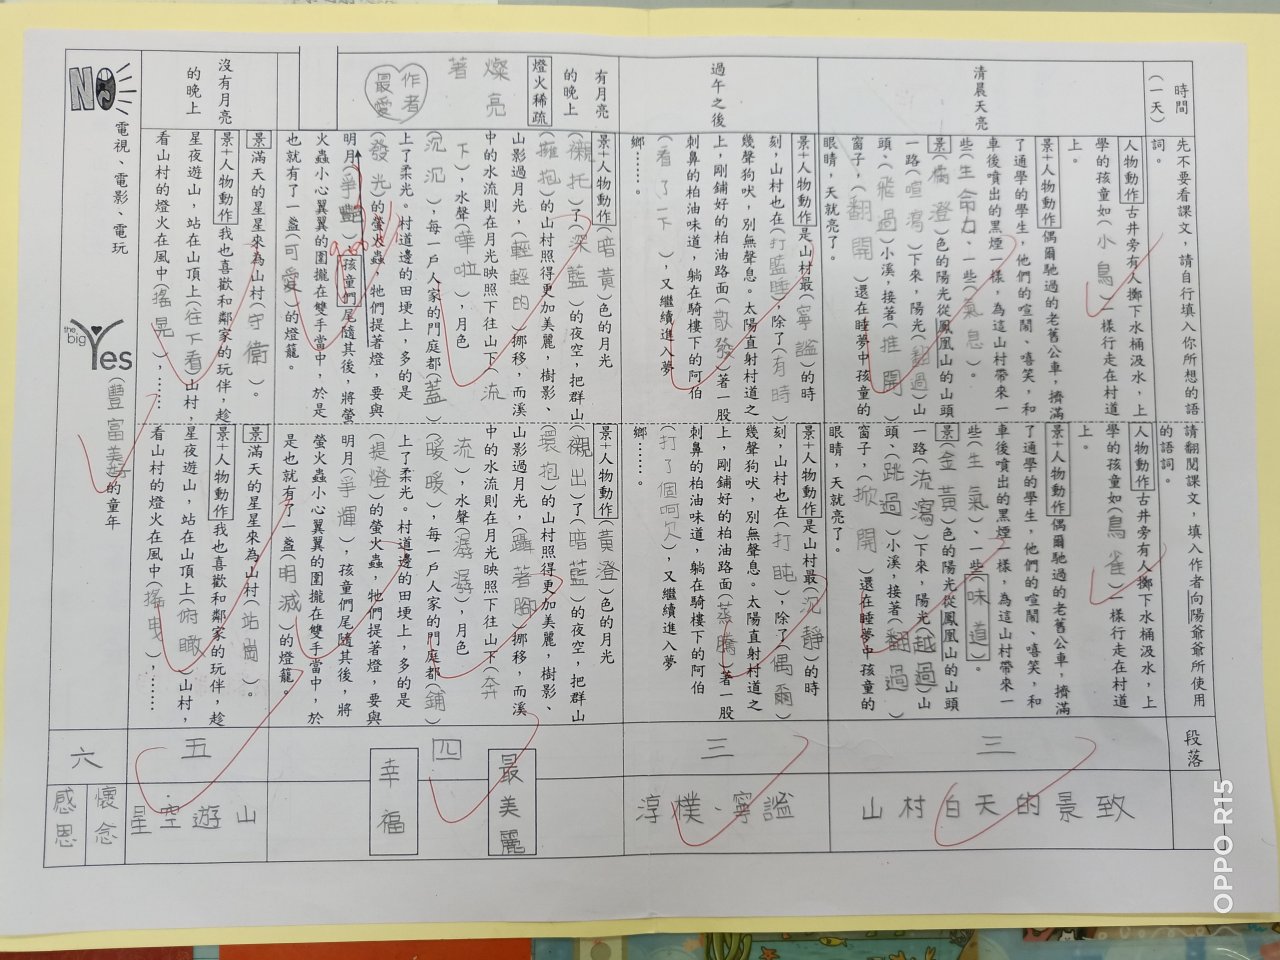 時間
(一天)
先不要看課文，請自行填入你所想的語
詞。
請翻閱課文，填入作者向陽爺爺所使用
的語詞。
段落
清晨天亮
人物動作 古井旁有人擲下水桶汲水，上
學的孩童如(小鳥)一樣行走在村道
上。
景+人物動作 偶爾馳過的老舊公車，擠滿
了通學的學生，他們的喧鬧、嘻笑，和
車後噴出的黑煙一樣，為這山村帶來一
些(生命力、一些(氣息)。
景(橘澄)色的陽光從鳳凰山的山頭
一路(喧瀉)下來，陽光(翻過)山
頭、(飛過)小溪，接著(推開)
窗子，(翻開)還在睡夢中孩童的
眼睛，天就亮了。
人物動作 古井旁有人擲下水桶汲水，上
學的孩童如(鳥雀)一樣行走在村道
上。
景+人物動作 偶爾馳過的老舊公車，擠滿
了通學的學生，他們的喧鬧、嘻笑，和
車後噴出的黑煙一樣，為這山村帶來一
些(生氣)、一些(味道)。
景(金黃)色的陽光從鳳凰山的山頭
一路(流瀉)下來，陽光(越過)山
頭、(跳過)小溪，接著(翻過)
窗子，(掀開)還在睡夢中孩童的
眼睛，天就亮了。
三
山村白天的景致
過午之後
景+人物動作 是山村最(寧謐)的時
刻，山村也在(打瞌睡)，除了(有時)
幾聲狗吠，別無聲息。太陽直射村道之
上，剛鋪好的柏油路面(散發)著一股
刺鼻的柏油味道，躺在騎樓下的阿伯
(看了一下)，又繼續進入夢
鄉……。
景+人物動作 是山村最(沉靜)的時
刻，山村也在(打盹)，除了(偶爾)
幾聲狗吠，別無聲息。太陽直射村道之
上，剛鋪好的柏油路面(蒸騰)著一股
刺鼻的柏油味道，躺在騎樓下的阿伯
(打了個呵欠)，又繼續進入夢
鄉……。
三
淳樸、寧謐
有月亮
的晚上
燈火稀疏
燦亮
著
作者
最愛
景+人物動作(暗黃)色的月光
(襯托)了(深藍)的夜空，把群山
(擁抱)的山村照得更加美麗，樹影、
山影過月光，(輕輕的)挪移，而溪
中的水流則在月光映照下往山下(流
下)，水聲(嘩啦)，月色
(沉沉)，每一戶人家的門庭都(蓋)
上了柔光。村道邊的田埂上，多的是
(發光)的螢火蟲，牠們提著燈，要與
明月(爭艷)，孩童們尾隨其後，將螢
火蟲小心翼翼的圍攏在雙手當中，於是
也就有了一盞(可愛)的燈籠。
景+人物動作(黃澄)色的月光
(襯出)了(暗藍)的夜空，把群山
(環抱)的山村照得更加美麗，樹影、
山影過月光，(躡著腳)挪移，而溪
中的水流則在月光映照下往山下(奔
流)，水聲(潺潺)，月色
(暖暖)，每一戶人家的門庭都(鋪)
上了柔光。村道邊的田埂上，多的是
(提燈)的螢火蟲，牠們提著燈，要與
明月(爭輝)，孩童們尾隨其後，將
螢火蟲小心翼翼的圍攏在雙手當中，於
是也就有了一盞(明滅)的燈籠。
四
最美麗
幸福
沒有月亮
的晚上
景 滿天的星星來為山村(守衛)。
景+人物動作 我也喜歡和鄰家的玩伴，趁
星夜遊山，站在山頂上(往下看)山村，
看山村的燈火在風中(搖晃)，……
景 滿天的星星來為山村(站崗)。
景+人物動作 我也喜歡和鄰家的玩伴，趁
星夜遊山，站在山頂上(俯瞰)山村，
看山村的燈火在風中(搖曳)，……
五
星空遊山
NO
電視、電影、電玩
the big Yes
(豐富美好)的童年
六
懷念
感恩
OPPO R15